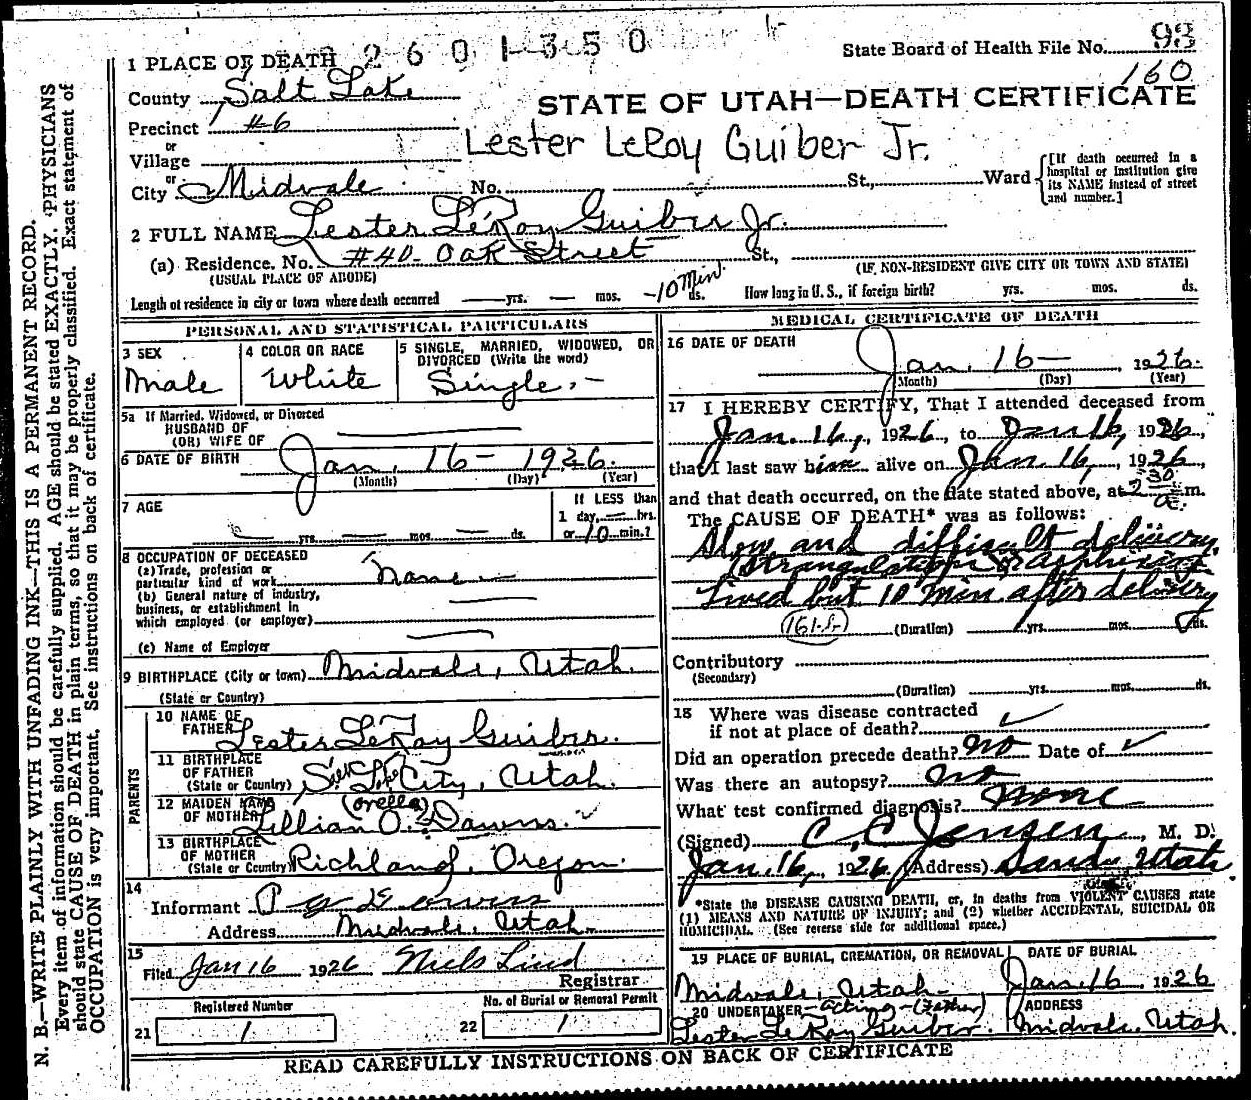 2601350
State Board of Health File No. 93
160
1 PLACE OF DEATH
County Salt Lake
STATE OF UTAH—DEATH CERTIFICATE
Precinct #6
or
Village
Lester LeRoy Guiber Jr.
or
City Midvale No. St., Ward
[If death occurred in a hospital or institution give its NAME instead of street and number.]
2 FULL NAME Lester LeRoy Guiber Jr.
(a) Residence. No. #40- Oak Street St.,
(USUAL PLACE OF ABODE)
(IF NON-RESIDENT GIVE CITY OR TOWN AND STATE)
Length of residence in city or town where death occurred — yrs. — mos. -10 Min. ds. How long in U. S., if foreign birth? yrs. mos. ds.
PERSONAL AND STATISTICAL PARTICULARS
3 SEX
Male
4 COLOR OR RACE
White
5 SINGLE, MARRIED, WIDOWED, OR DIVORCED (Write the word)
Single.-
5a If Married, Widowed, or Divorced
HUSBAND OF
(OR) WIFE OF
6 DATE OF BIRTH Jan. 16- 1926.
(Month) (Day) (Year)
7 AGE
yrs. — mos. — ds.
If LESS than
1 day, — hrs.
or 10 min.?
8 OCCUPATION OF DECEASED
(a) Trade, profession or
particular kind of work None —
(b) General nature of industry,
business, or establishment in
which employed (or employer)
(c) Name of Employer
9 BIRTHPLACE (City or town) Midvale, Utah.
(State or Country)
PARENTS
10 NAME OF
FATHER Lester LeRoy Guiber.
11 BIRTHPLACE
OF FATHER
(State or Country) Salt Lake City, Utah.
12 MAIDEN NAME
OF MOTHER Lillian O. (Orella) Downs.
13 BIRTHPLACE
OF MOTHER
(State or Country) Richland, Oregon.
14
Informant
Address Midvale, Utah.
15
Filed Jan 16 1926 Niels Lind
Registrar
Registered Number
21 1
No. of Burial or Removal Permit
22 1
MEDICAL CERTIFICATE OF DEATH
16 DATE OF DEATH
Jan. 16 — , 1926.
(Month) (Day) (Year)
17 I HEREBY CERTIFY, That I attended deceased from
Jan. 16, 1926, to Jan 16, 1926,
that I last saw him alive on Jan. 16, 1926,
and that death occurred, on the date stated above, at 2 30 a. m.
The CAUSE OF DEATH* was as follows:
Slow and difficult delivery.
(Strangulation or asphyxia)
Lived but 10 Min after delivery
(Duration) yrs. mos. ds.
Contributory
(Secondary)
(Duration) yrs. mos. ds.
18 Where was disease contracted
if not at place of death? ✓
Did an operation precede death? No Date of ✓
Was there an autopsy? No
What test confirmed diagnosis? None
(Signed) C. C. Jensen, M. D.
Jan. 16, 1926 (Address) Sandy Utah.
*State the DISEASE CAUSING DEATH, or, in deaths from VIOLENT CAUSES state
(1) MEANS AND NATURE OF INJURY; and (2) whether ACCIDENTAL, SUICIDAL OR
HOMICIDAL. (See reverse side for additional space.)
19 PLACE OF BURIAL, CREMATION, OR REMOVAL
Midvale, Utah-
DATE OF BURIAL
Jan. 16, 1926
20 UNDERTAKER- acting- (Father)
Lester LeRoy Guiber.
ADDRESS
Midvale, Utah.
READ CAREFULLY INSTRUCTIONS ON BACK OF CERTIFICATE
N. B.—WRITE PLAINLY WITH UNFADING INK—THIS IS A PERMANENT RECORD.
Every item of information should be carefully supplied. AGE should be stated EXACTLY. PHYSICIANS
should state CAUSE OF DEATH in plain terms, so that it may be properly classified. Exact statement of
OCCUPATION is very important. See instructions on back of certificate.